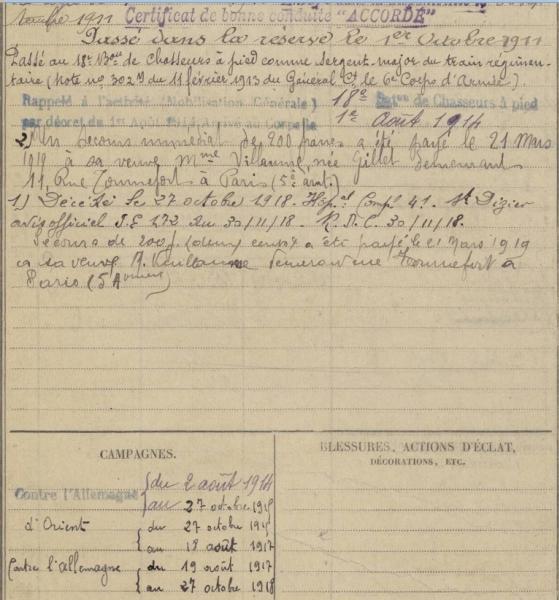 tembre 1911 Certificat de bonne conduite "ACCORDÉ"
Passé dans la réserve le 1er Octobre 1911
Passé au 18e Bon de chasseurs à pied comme sergent-major du train régimen-
taire (Note no 302 du 11 février 1913 du Général Ct le 6e Corps d'Armée).
Rappelé à l'activité (Mobilisation Générale) 18e Baton de Chasseurs à pied
par décret du 1er Août 1914. Arrivé au Corps le 1er Août 1914
2) Un secours immédiat de 200 francs a été payé le 21 Mars
1919 à sa veuve Mme née Gillet demeurant
11, Rue Tournefort à Paris (5e arrt.)
1) Décédé le 27 octobre 1918. Hôpal Compl 41. St Dizier
avis officiel 30/11/18. 30/11/18.
Secours de 200f (deux cents) a été payé le 21 Mars 1919
à sa veuve Tournefort à
Paris (5
CAMPAGNES.
Contre l'Allemagne { du 2 août 1914
au 27 octobre 1915
d'Orient { du 27 octobre 1915
au 18 août 1917
Contre l'allemagne { du 19 août 1917
au 27 octobre 1918
BLESSURES, ACTIONS D'ÉCLAT,
DÉCORATIONS, ETC.